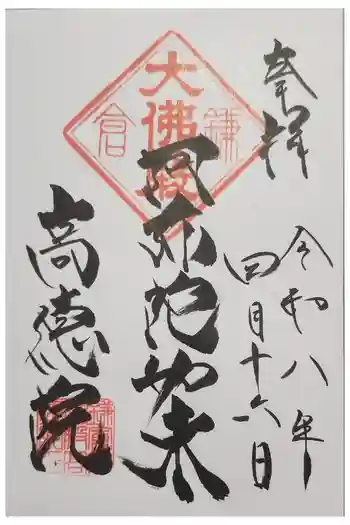 奉拝
令和八年
四月十六日
大佛殿
鎌倉
阿弥陀如来
高德院